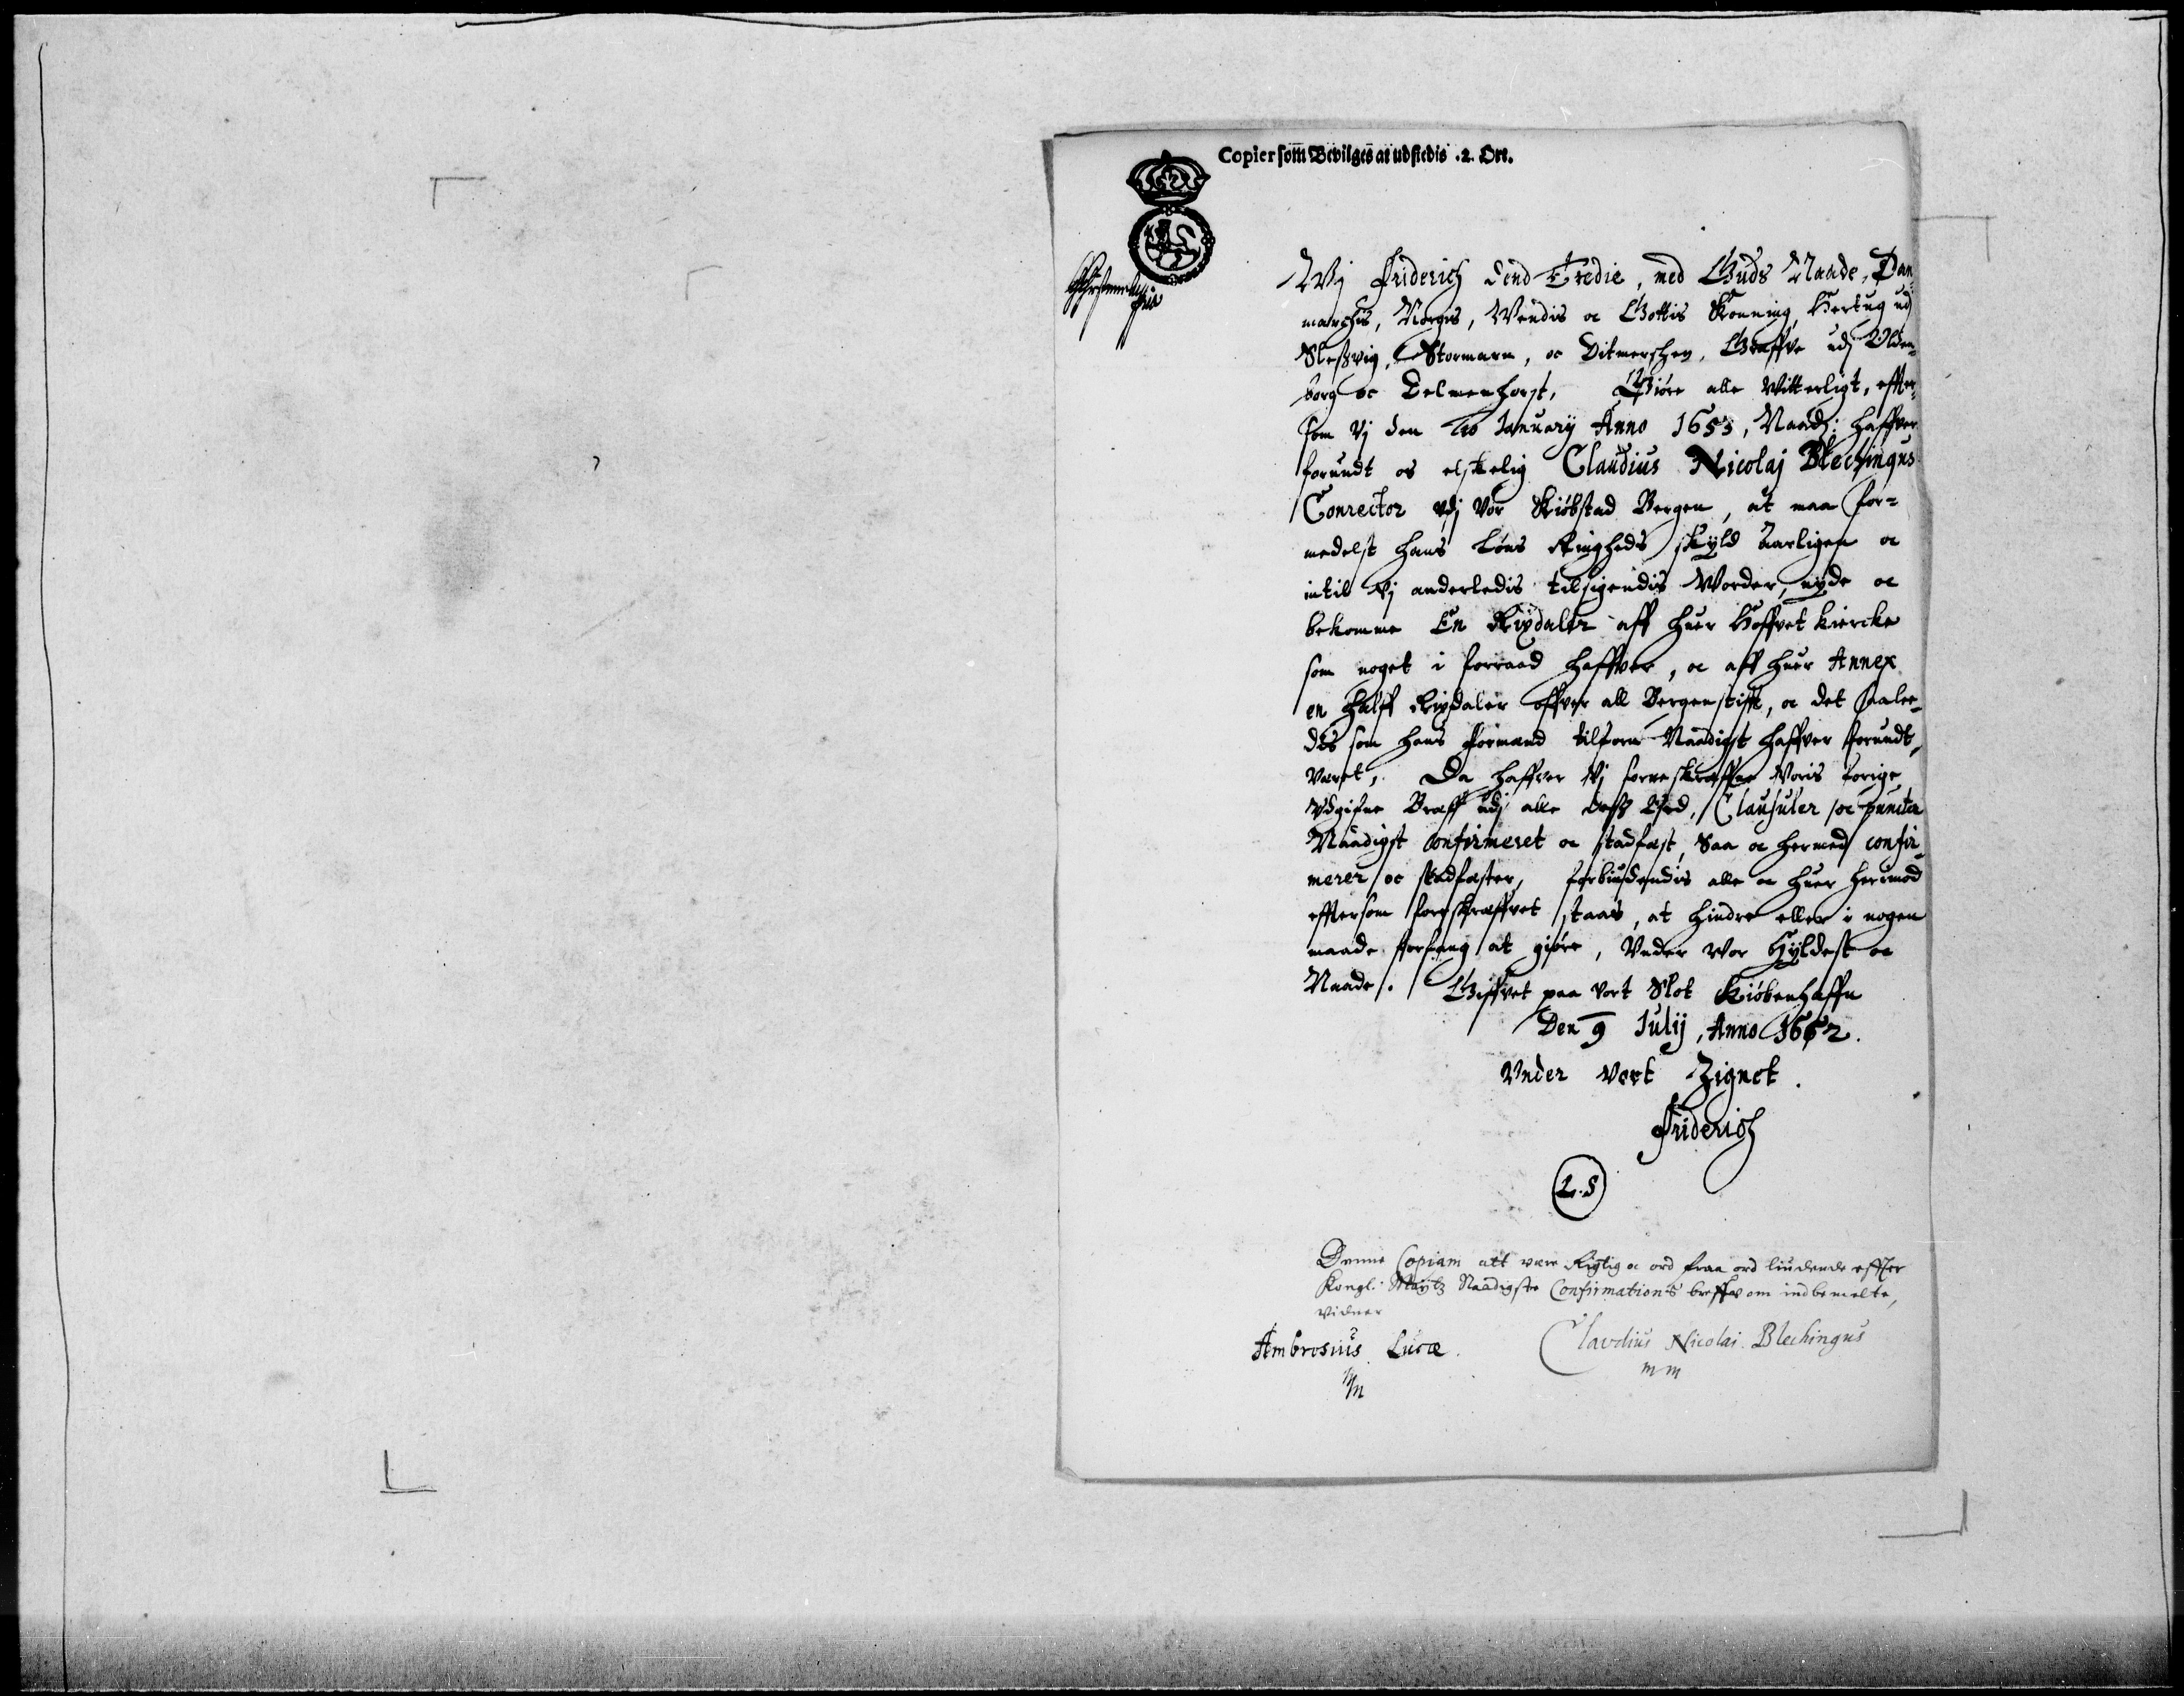 Copier som Bevilges at udstedis .2. Ort.
Wj Friderich dend Tredie, med Guds Naade, Dan-
marchis, Norges, Wendis oc Gottis Konning, Hertug udj
Sleßvig, Stormarn, oc Ditmerschen, Greffve udj Olden-
borg oc Delmenhorst, Giøre alle Witterligt, effter-
som Vj den 10 January Anno 1653, Naadj: haffver
forundt os elskelig Claudius Nicolaj Blechingus
Conrector vdj Vor Kiøbstad Bergen, at maa for-
medelst hans Løns Ringheds skyld aarligen oc
intil Vj anderledis tilsigendis Worder, nyde oc
bekomme En Rixdaler aff huer Hoffvet kiercke
som noget i forraad haffver, oc aff huer Annex
en halff Rixdaler offver all Bergenstifft, oc det saale-
des som hans formand tilforn Naadigst haffver forundt
været, Da haffver Vj forneskreffne Voris forige
Vdgifne Breff udj alle deß Ord, Clausuler oc puncter
Naadigst Confirmeret oc stadfæst, Saa oc hermed confir-
merer oc stadfæster, forbiudendis alle oc huer herimod
efftersom forskreffvet staar, at hindre eller i nogen
maade forfang at giøre, Vnder Vor Hyldest oc
Naade. Giffvet paa Vort Slot Kiøbenhaffn
Den 9 Julij, Anno 1662.
Vnder Vort Zignet.
Friderich
L.S
Denne Copiam att være Rigtig oc ord fraa ord liudende effter
Kongl: Maytz Naadigste Confirmations breff om indbemelte,
vidner
Ambrosius Lucæ. Claudius Nicolai Blechingus
mm